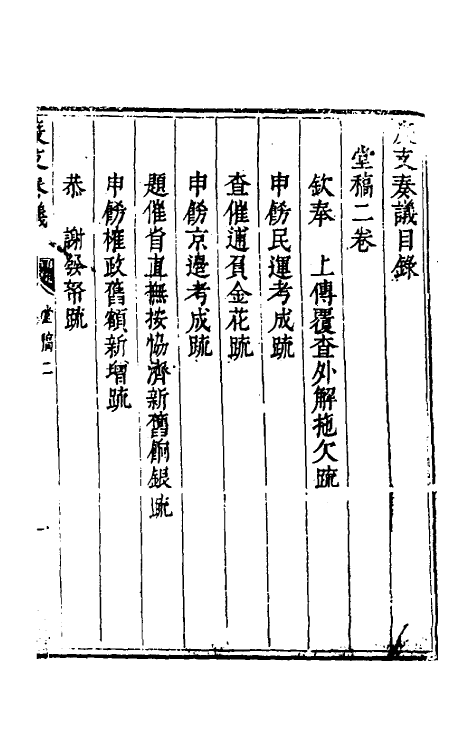 度支奏議目錄
堂稿二卷
欽奉　上傳覆查外解拖欠疏
申飭民運考成疏
查催逋負金花疏
申飭京邊考成疏
題催省直撫按恊濟新舊餉銀疏
申飭榷政舊額新增疏
恭　謝發帑疏
度支奏議
堂稿二
一